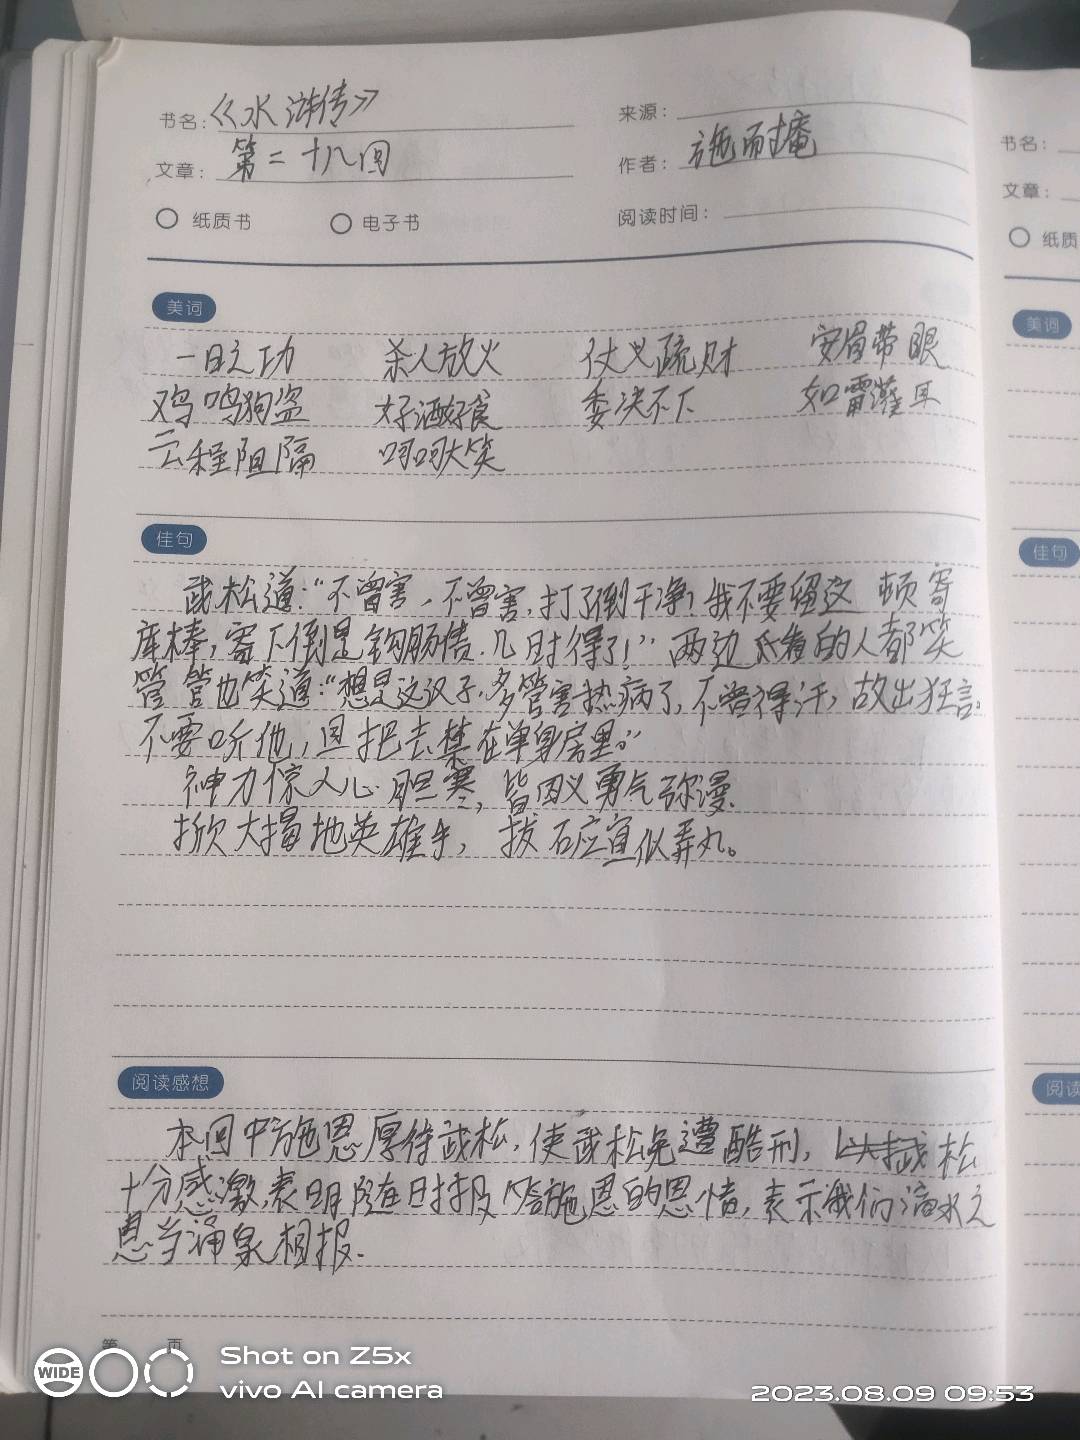 书名：《水浒传》
来源：
文章：第二十八回
作者：施耐庵
纸质书
电子书
阅读时间：
美词
一日之功 杀人放火 仗义疏财 安眉带眼
鸡鸣狗盗 好酒好食 委决不下 如雷灌耳
云程阻隔 呵呵大笑
佳句
武松道：“不曾害，不曾害，打了倒干净，我不要留这顿寄
库棒，寄下倒是钩肠债，几时得了！”两边看的人都笑
管营也笑道：“想是这汉子多管害热病了，不曾得汗，故出狂言。
不要听他，且把去禁在单身房里。”
神力惊人心胆寒，皆因义勇气弥漫.
掀天揭地英雄手，拔石应宜似弄丸。
阅读感想
本回中施恩厚待武松，使武松免遭酷刑，武松
十分感激，表明随时报答施恩的恩情，表示我们滴水之
恩当涌泉相报.
第 页
书名：
文章：
纸质
美词
佳句
阅读
WIDE
Shot on Z5x
vivo AI camera
2023.08.09 09:53